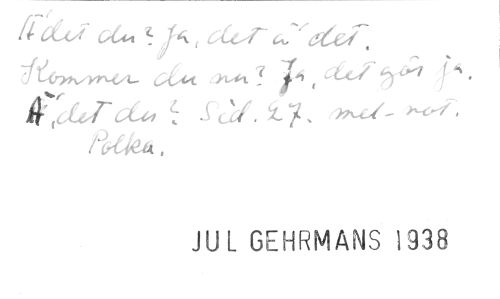 Ä'det du? Ja, det ä' det.
Kommer du nu? Ja, det gör ja.
Ä'det du? Sid. 27. mel-not.
Polka.
JUL GEHRMANS 1938